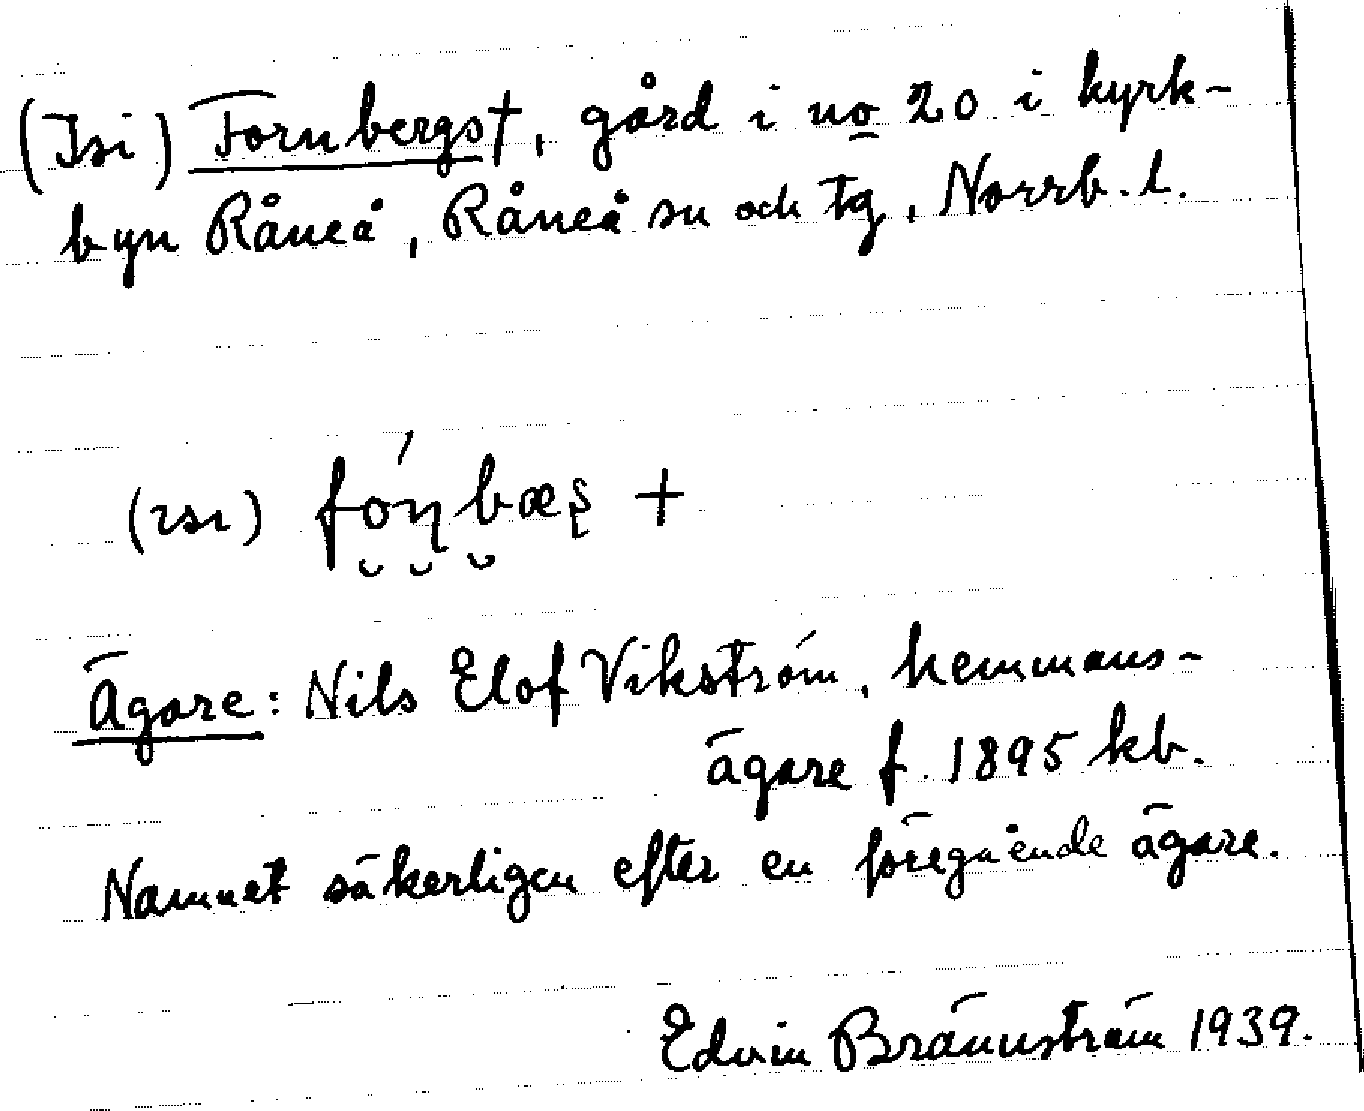 (Isi) Fornbergs†, gård i no 20 i kyrk-
byn Råneå, Råneå sn och tg, Norrb. l.
(ɪsɪ) fó̯n̯b̯æʂ +
Ägare: Nils Elof Vikström, hemmans-
ägare f. 1895 kb.
Namnet säkerligen efter en föregående ägare.
Edvin Brännström 1939.